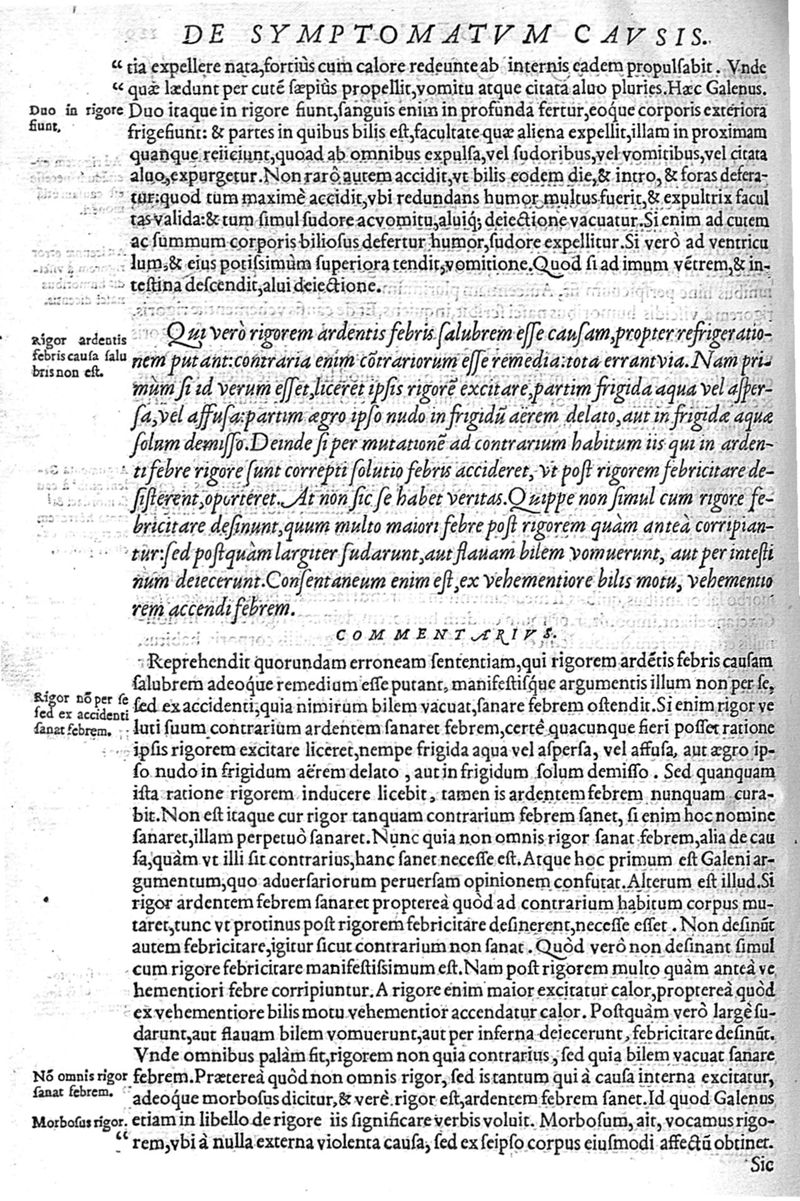 DE SYMPTOMATVM CAVSIS.
“ tia expellere nata,fortiùs cum calore redeunte ab internis eadem propulsabit. Vnde
“ quæ lædunt per cutẽ sæpiùs propellit,vomitu atque citata aluo pluries.Hæc Galenus.
Duo in rigore
fiunt.
Duo itaque in rigore fiunt,sanguis enim in profunda fertur,eoque corporis exteriora
frigefiunt: & partes in quibus bilis est,facultate quæ aliena expellit,illam in proximam
quanque reiiciunt,quoad ab omnibus expulsa,vel sudoribus,vel vomitibus,vel citata
aluo,expurgetur.Non rarò autem accidit,vt bilis eodem die,& intro,& foras defera-
tur:quod tum maximè accidit,vbi redundans humor multus fuerit,& expultrix facul
tas valida:& tum simul sudore ac vomitu,aluiq; deiectione vacuatur.Si enim ad cutem
ac summum corporis biliosus defertur humor,sudore expellitur.Si verò ad ventricu
lum,& eius potissimùm superiora tendit,vomitione.Quod si ad imum vẽtrem,& in-
testina descendit,alui deiectione.
Rigor ardentis
febris causa salu
bris non est.
Qui verò rigorem ardentis febris salubrem esse causam,propter refrigeratio-
nem putant:contraria enim cõtrariorum esse remedia:tota errant via.Nam pri-
mùm si id verum esset,liceret ipsis rigorẽ excitare,partim frigida aqua vel asper-
sa,vel affusa:partim ægro ipso nudo in frigidũ aërem delato,aut in frigidæ aquæ
solum demisso.Deinde si per mutationẽ ad contrarium habitum iis qui in arden-
ti febre rigore sunt correpti solutio febris accideret, vt post rigorem febricitare de-
sisterent,oporteret.At non sic se habet veritas.Quippe non simul cum rigore fe-
bricitare desinunt,quum multo maiori febre post rigorem quàm anteà corripian-
tur:sed postquàm largiter sudarunt,aut flauam bilem vomuerunt, aut per intesti
num deiecerunt.Consentaneum enim est,ex vehementiore bilis motu, vehementio
rem accendi febrem.
COMMENTARIVS.
Reprehendit quorundam erroneam sententiam,qui rigorem ardẽtis febris causam
salubrem adeoque remedium esse putant, manifestisque argumentis illum non per se,
Rigor nõ per se
sed ex accidenti
sanat febrem.
sed ex accidenti,quia nimirum bilem vacuat,sanare febrem ostendit.Si enim rigor ve
luti suum contrarium ardentem sanaret febrem,certè quacunque fieri posset ratione
ipsis rigorem excitare liceret,nempe frigida aqua vel aspersa, vel affusa, aut ægro ip-
so nudo in frigidum aërem delato, aut in frigidum solum demisso. Sed quanquam
ista ratione rigorem inducere licebit, tamen is ardentem febrem nunquam cura-
bit.Non est itaque cur rigor tanquam contrarium febrem sanet, si enim hoc nomine
sanaret,illam perpetuò sanaret.Nunc quia non omnis rigor sanat febrem,alia de cau
sa,quàm vt illi sit contrarius,hanc sanet necesse est.Atque hoc primum est Galeni ar-
gumentum,quo aduersariorum peruersam opinionem confutat.Alterum est illud.Si
rigor ardentem febrem sanaret proptereà quòd ad contrarium habitum corpus mu-
taret,tunc vt protinus post rigorem febricitare desinerent,necesse esset. Non desinũt
autem febricitare,igitur sicut contrarium non sanat. Quòd verò non desinant simul
cum rigore febricitare manifestissimum est.Nam post rigorem multo quàm anteà ve
hementiori febre corripiuntur.A rigore enim maior excitatur calor,proptereà quòd
ex vehementiore bilis motu vehementior accendatur calor. Postquàm verò largè su-
darunt,aut flauam bilem vomuerunt,aut per inferna deiecerunt, febricitare desinũt.
Vnde omnibus palàm fit,rigorem non quia contrarius, sed quia bilem vacuat sanare
Nõ omnis rigor
sanat febrem.
febrem.Prætereà quòd non omnis rigor, sed is tantum qui à causa interna excitatur,
adeoque morbosus dicitur,& verè rigor est,ardentem febrem sanet.Id quod Galenus
Morbosus rigor.
etiam in libello de rigore iis significare verbis voluit. Morbosum, ait, vocamus rigo-
“ rem,vbi à nulla externa violenta causa, sed ex seipso corpus eiusmodi affectũ obtinet.
Sic